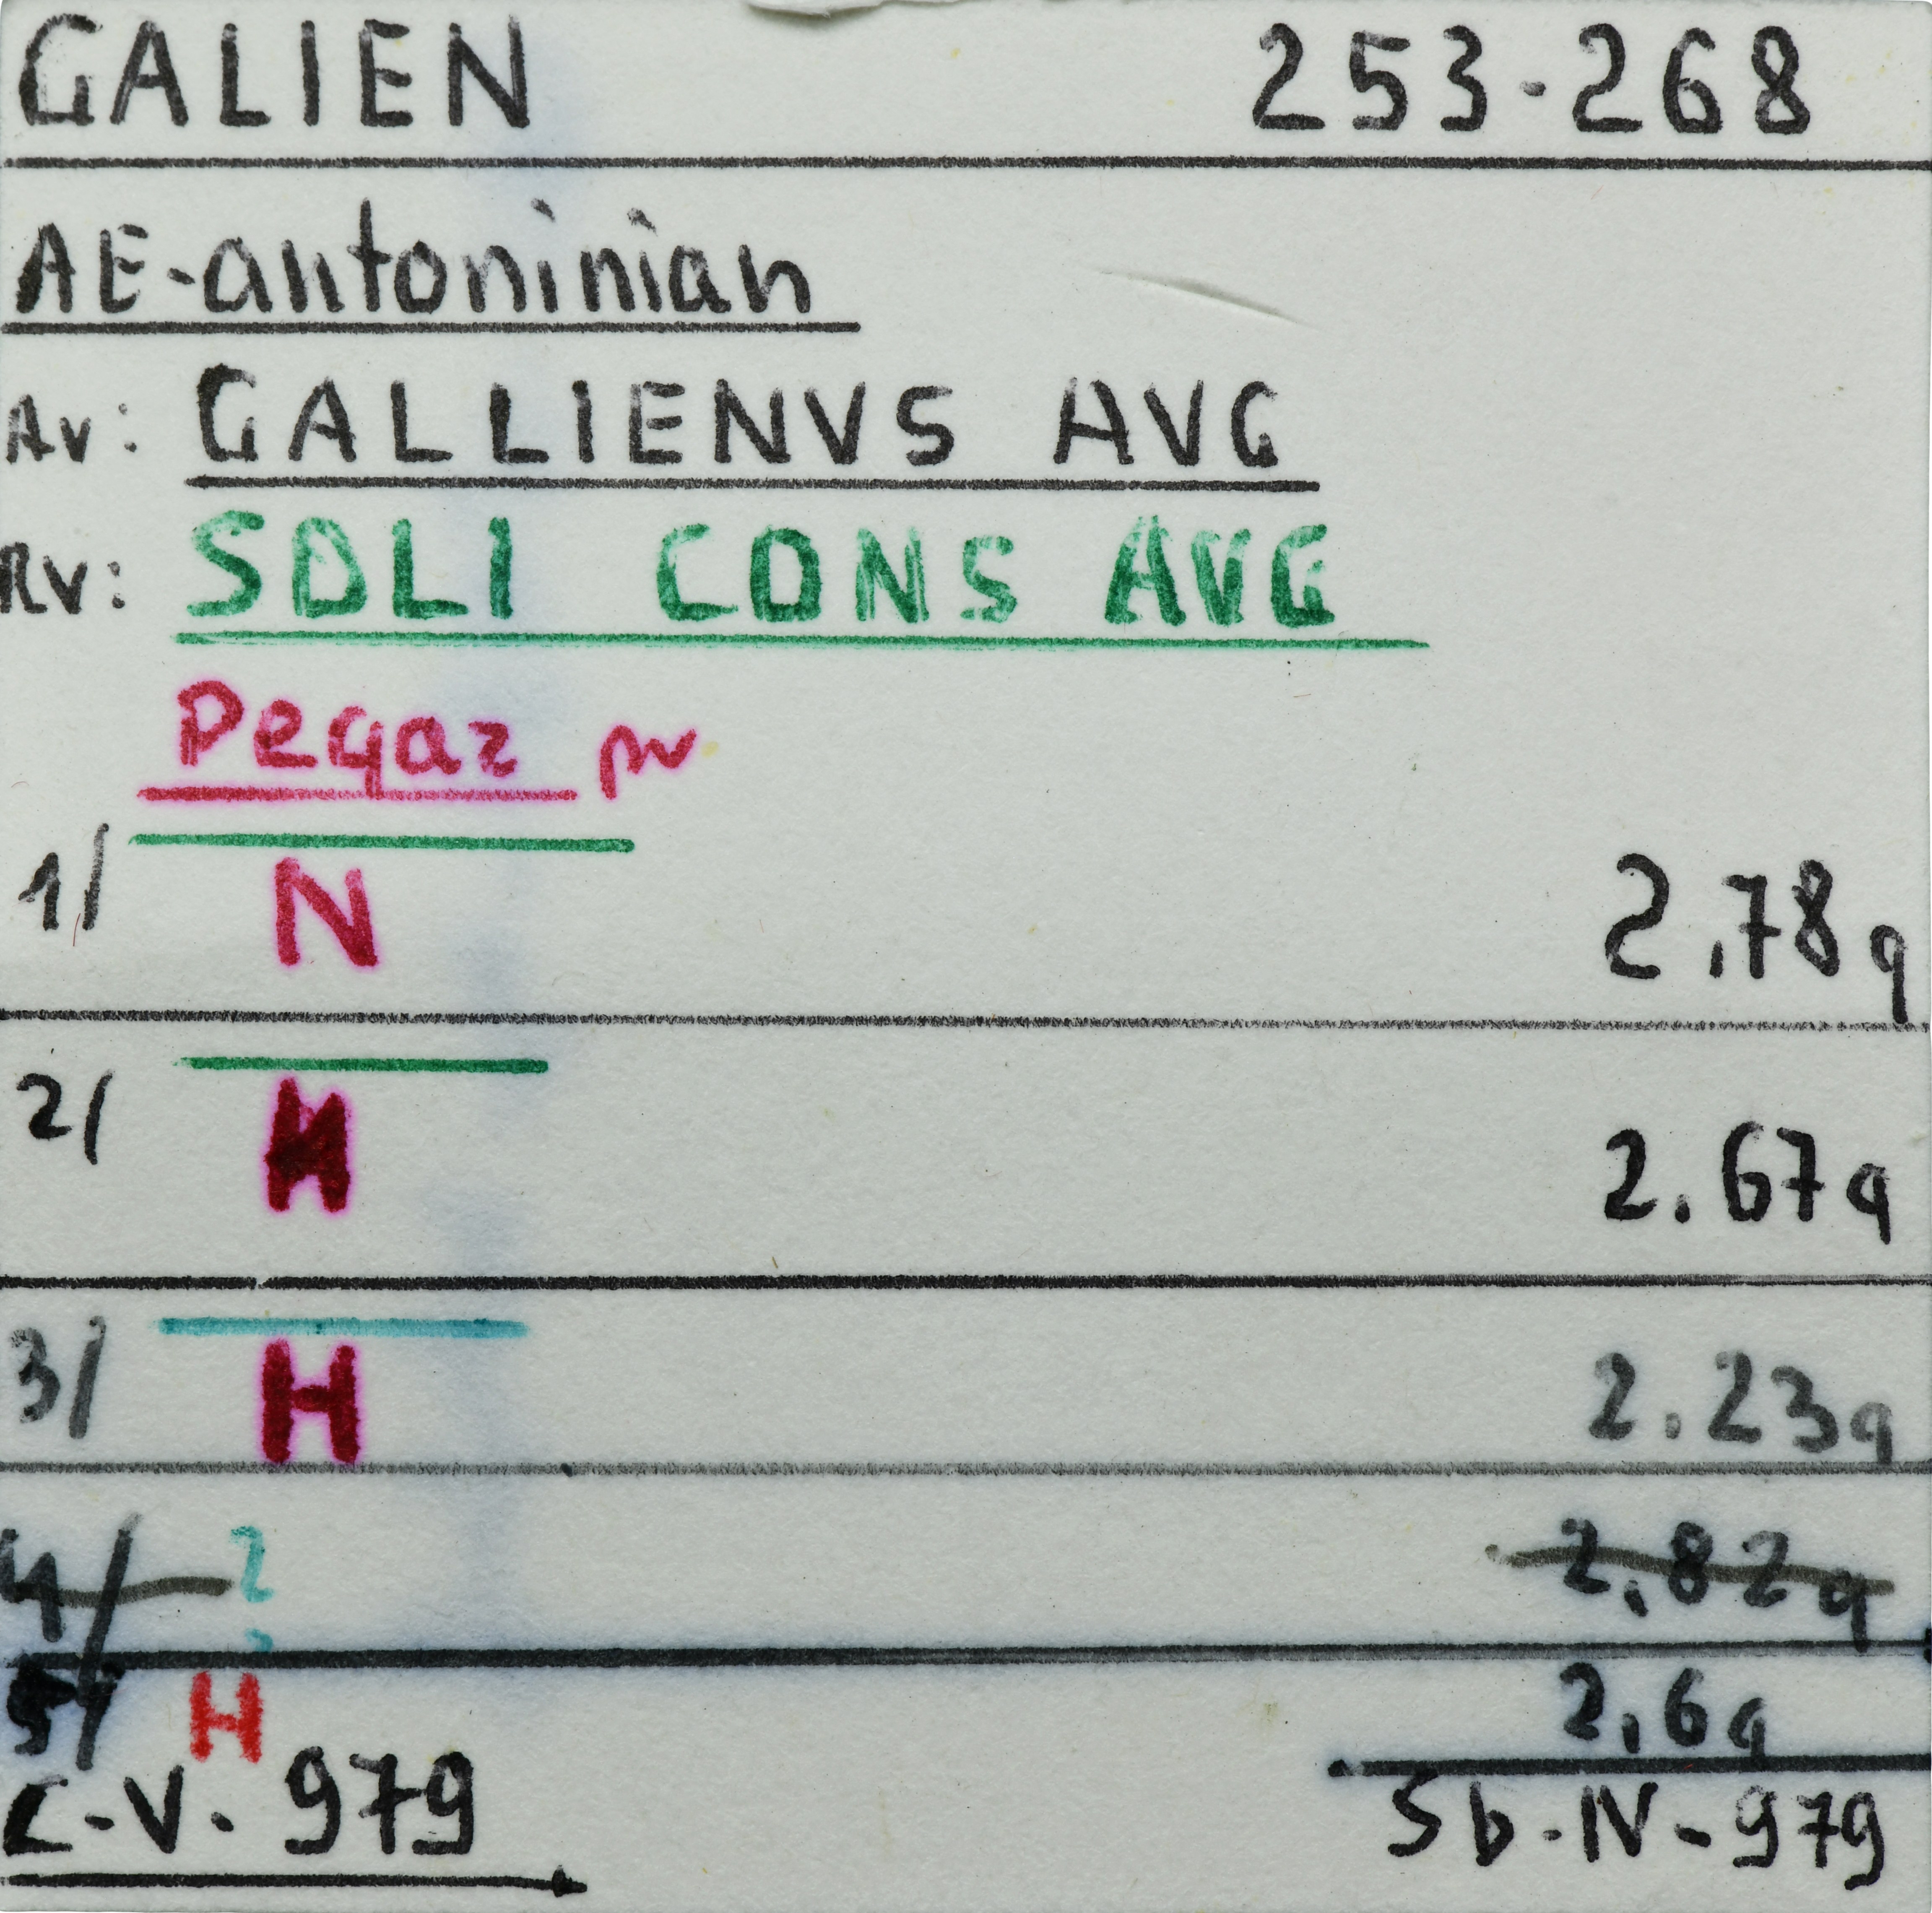 GALIEN 253-268
AE-antoninian
Av: GALLIENVS AVG
Rv: SOLI CONS AVG
Pegaz pv
1/ N 2.78g
2/ N 2.67g
3/ H 2.23g
4/ ? 2.82g
5/ H 2.6g
C-V-979 Sb-IV-979